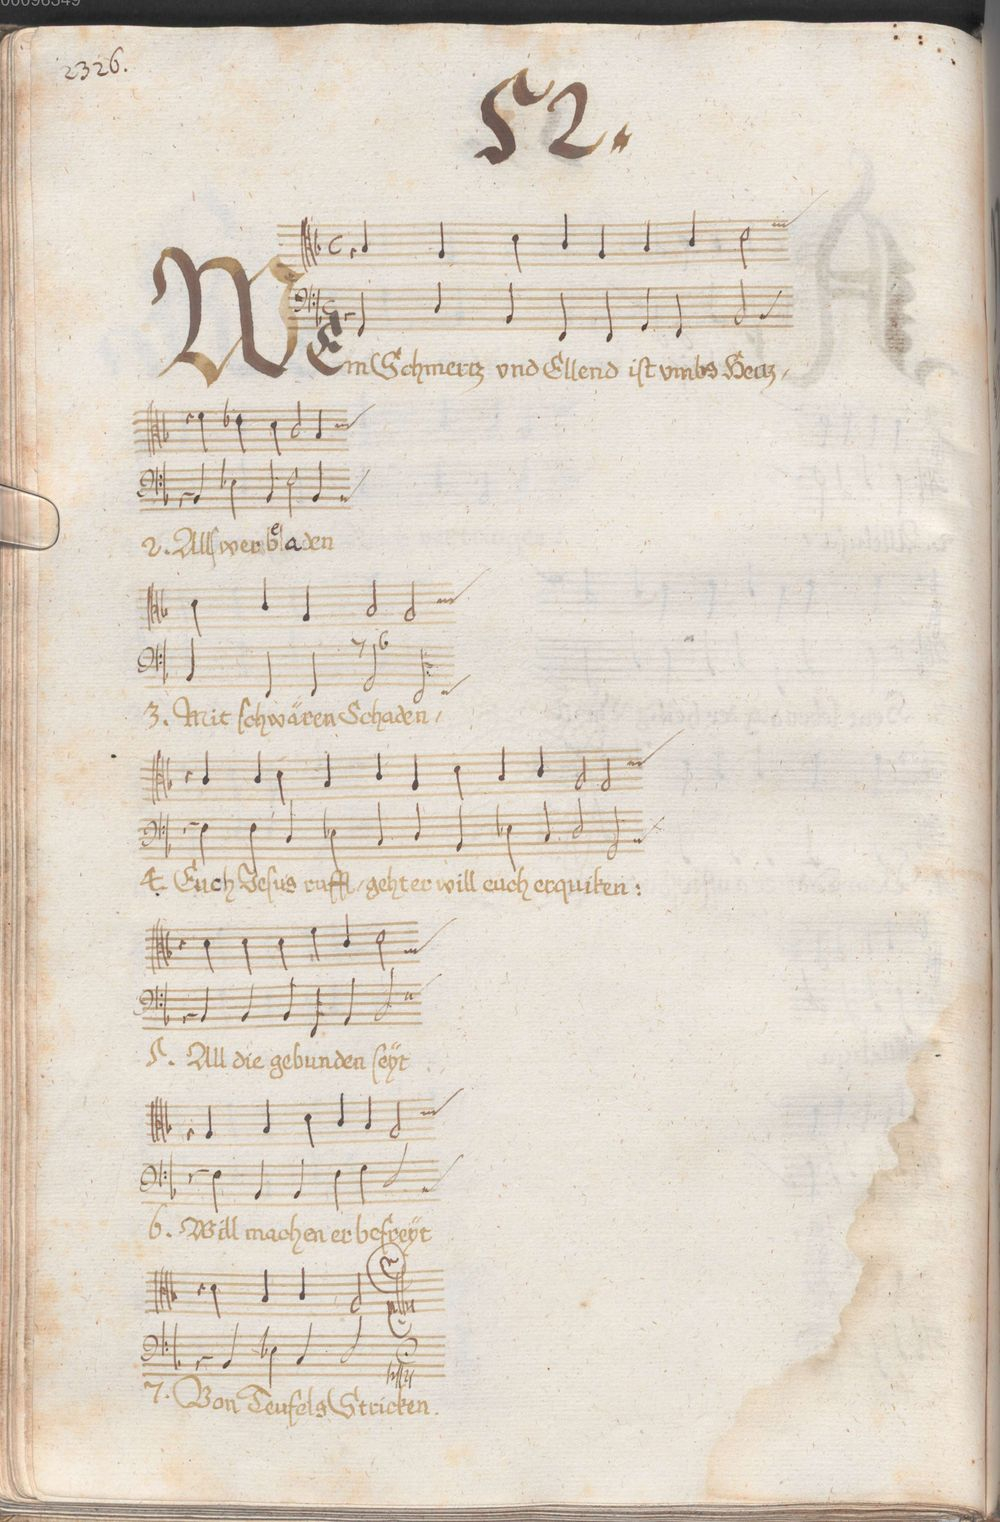 00096349
2326.
52.
WEm Schmertz vnd Ellend ist vmbs Hertz,
2. Allß wer beladen
7 6
3. Mit schwären Schaden,
4. Euch Jesus rufft, geht er will euch erquiken:
5. All die gebunden seÿt
6. Will machen er befreÿt
7. Von Teufels Stricken.